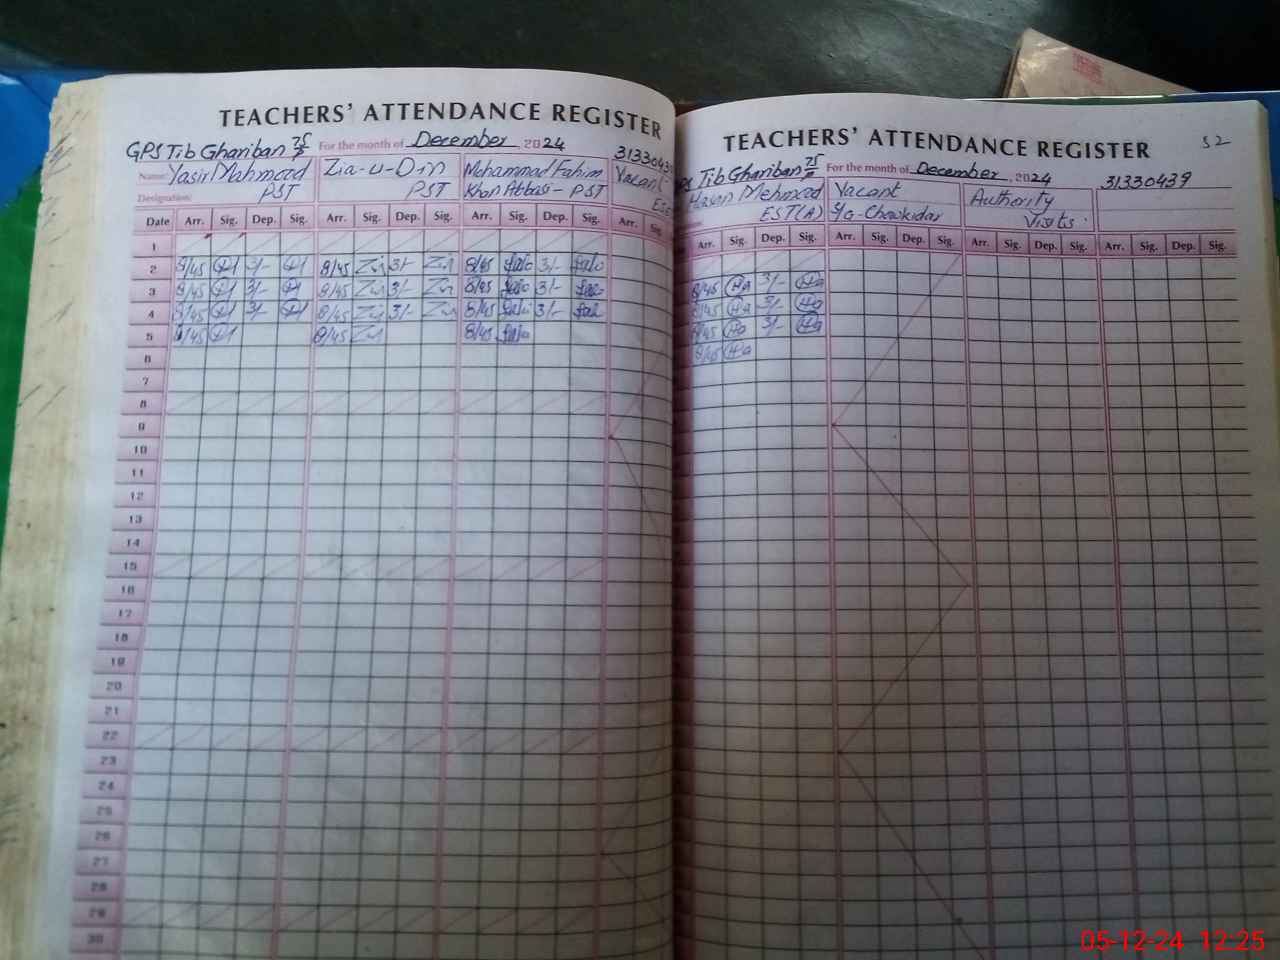 TEACHERS' ATTENDANCE REGISTER
GPS Tib Ghariban 75/P For the month of December, 2024 31330439
Name: Yasir Mahmood Zia-u-Din Mohammad Fahim Vacant
Designation: PST PST Khan Abbas - PST ESE
Date Arr. Sig. Dep. Sig. Arr. Sig. Dep. Sig. Arr. Sig. Dep. Sig. Arr. Sig.
1
2 8/45 3/- 8/45 Zia 3/- Zia 8/45 3/-
3 8/45 3/- 8/45 Zia 3/- Zia 8/45 3/-
4 8/45 3/- 8/45 Zia 3/- Zia 8/45 3/-
5 8/45 8/45 Zia 8/45
6
7
8
9
10
11
12
13
14
15
16
17
18
19
20
21
22
23
24
25
26
27
28
29
30
TEACHERS' ATTENDANCE REGISTER 52
Tib Ghariban 75/P For the month of December, 2024 31330439
Hasan Mehmood Vacant Authority
EST(A) S/G-Chowkidar Visits:
Arr. Sig. Dep. Sig. Arr. Sig. Dep. Sig. Arr. Sig. Dep. Sig. Arr. Sig. Dep. Sig.
8/45 Ha 3/- Ha
8/45 Ha 3/- Ha
8/45 Ha 3/- Ha
8/45 Ha
05-12-24 12:25